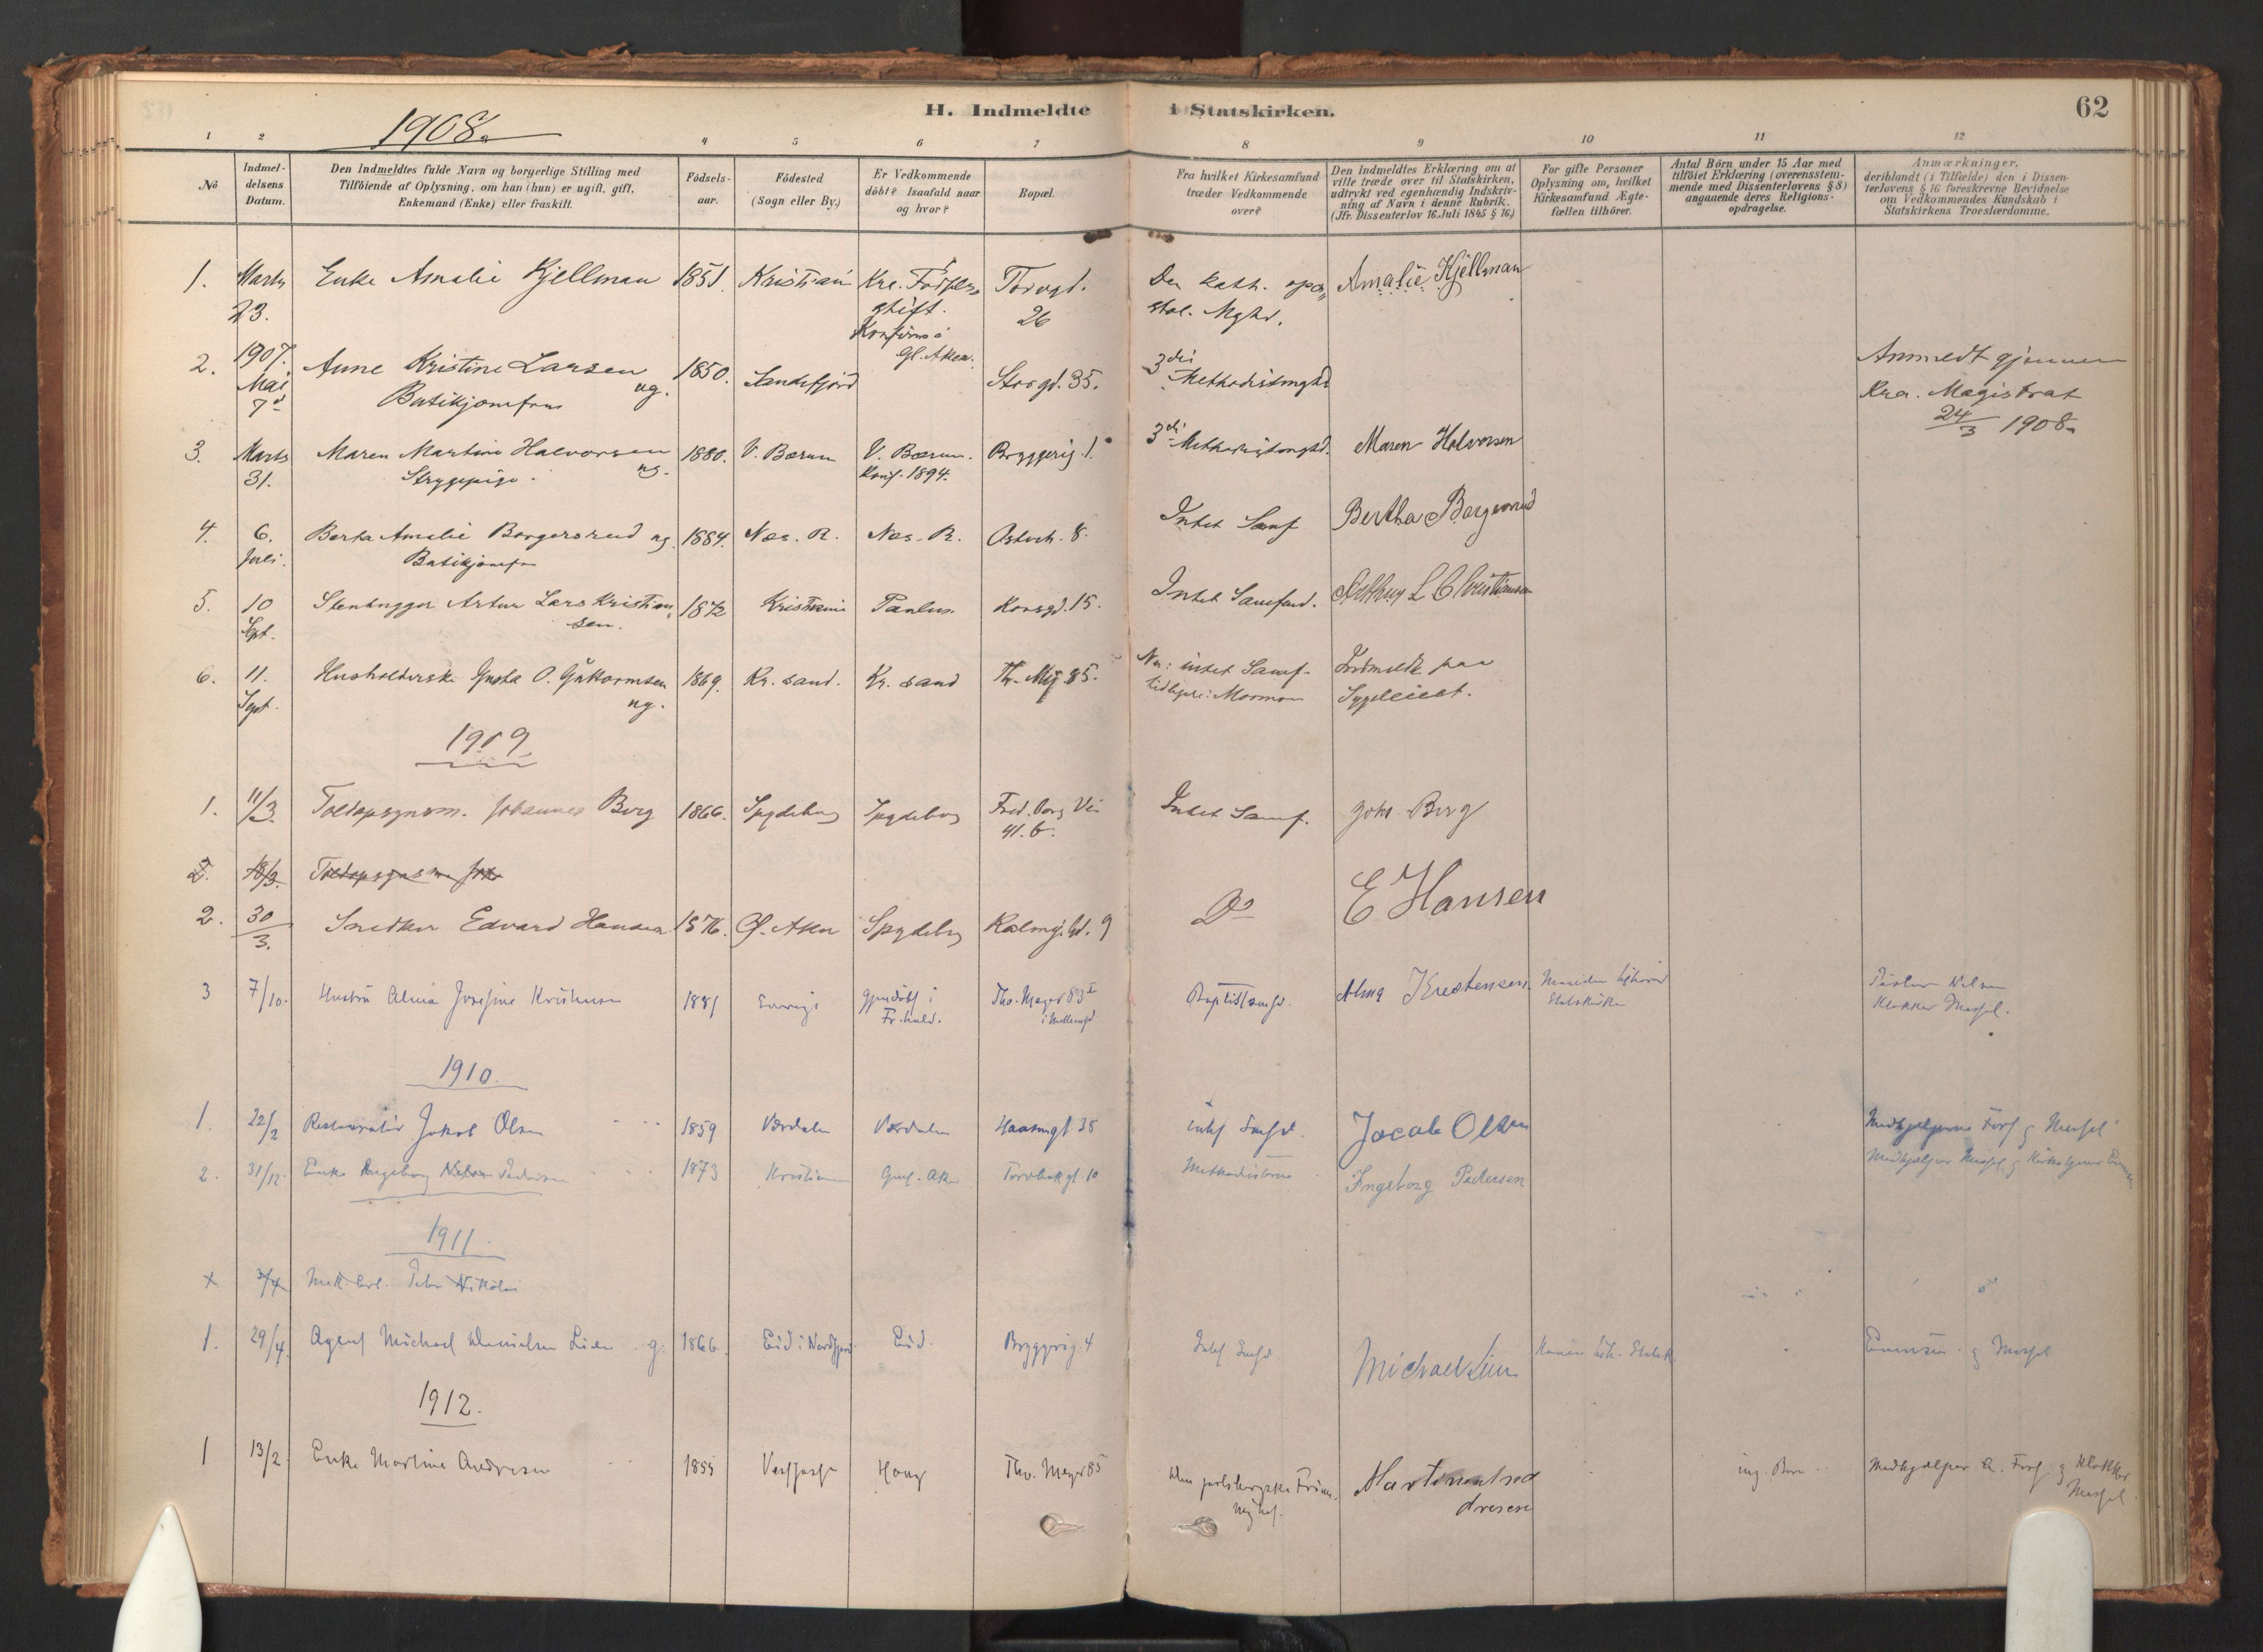 H. Indmeldte i Statskirken.
62
1908.
1 2 4 5 6 7 8 9 10 11 12
No
Indmel-
delsens
Datum.
Den Indmeldtes fulde Navn og borgerlige Stilling med
Tilföiende af Oplysning, om han (hun) er ugift, gift,
Enkemand (Enke) eller fraskilt.
Födsels-
aar.
Födested
(Sogn eller By.)
Er Vedkommende
döbt? Isaafald naar
og hvor?
Bopæl.
Fra hvilket Kirkesamfund
træder Vedkommende
over?
Den Indmeldtes Erklæring om at
ville træde over til Statskirken,
udtrykt ved egenhændig Indskriv-
ning af Navn i denne Rubrik.
(Jfr. Dissenterlov 16. Juli 1845 § 16.)
For gifte Personer
Oplysning om, hvilket
Kirkesamfund Ægte-
fællen tilhörer.
Antal Börn under 15 Aar med
tilföiet Erklæring (overensstem-
mende med Dissenterlovens § 8)
angaaende deres Religions-
opdragelse.
Anmærkninger,
deriblandt (i Tilfælde) den i Dissen-
terlovens § 16 foreskrevne Bevidnelse
om Vedkommendes Kundskab i
Statskirkens Troeslærdomme.
1. Marts 23. Enke Amalie Kjellman 1851. Kristiania Kra. Fødsels-
stift.
Konfirm. i
Gl. Aker.
Torvgd.
26
Den kath. apo-
stol. Mghd.
Amalie Kjellman
2. 1907. Mai 7d Anne Kristine Larsen ug.
Butikjomfru
1850. Sandefjord Storgd. 35. 3die Methodistmghd
Anmeldt gjennem
Kra. Magistrat
24/3 1908.
3. Marts 31. Maren Martine Halvorsen ug.
Strygepige.
1880. V. Bærum V. Bærum.
Konf. 1894.
Bryggerig. 1. 3die Methodistmghd. Maren Halvorsen
4. 6. Juli. Berta Amalie Borgersrud ug.
Butikjomfr
1884. Nes. R. Nes. R. Osterh. 8. Intet Samf Bertha Borgersrud
5. 10 Sept. Stenhugger Artur Lars Kristian-
sen.
1872 Kristiania Paulus Korsgd. 15. Intet Samfund. Arthur L Christiansen
6. 11. Sept. Husholderske Gusta O. Guttormsen
ug.
1869. Kr. sand. Kr. sand Th. Mg. 85. Nu: intet Samf.
tidligere: Mormon
Indmeldt paa
Sygeleiet.
1909
1. 11/3. Toldopsynsm. Johannes Berg 1866. Spydeberg Spydeberg Fred. borg Vei
41. b.
Intet Samf. Johs. Berg
2. 18/3. Toldopsynsm Joh
2. 30/3. Snedker Edvard Hansen 1876. Gl. Aker Spydeberg Kalmeyer Gd. 9 Do E Hansen
3 7/10. Hustru Alma Josefine Kristensen 1881 Sverige gjendöbt i
Fr.hald.
Tho. Meyer 83 I
Baptistsamfd. Alma Krestensen Manden tilhører
Statskirken
Pastor Nilsen
Klokker Mossel.
1910.
1. 22/2 Restauratör Jakob Olsen 1859 Værdalen Værdalen Hausmgt. 35 intet Samfd. Jacob Olsen
Medhjælperne Torf & Mossel
2. 31/12. Enke Ingeborg Pedersen 1873 Kristiania Gml. Aker Torvbakgt. 10 Methodisterne Ingeborg Pedersen
Medhjælper Mossel &
1911.
x 3/4 Mek. Arb. Peter Nikolai
1. 29/4. Agent Michael Danielsen Lien g. 1866. Eid i Nordfjord Eid. Bryggerig. 4 Intet Samfd. Michael Lien Konen tilh. Statsk. & Mossel
1912.
1 13/2. Enke Martine Andresen 1855 Vestfossen Haug Tho. Meyer 85 Den jarlsbergske Frim-
nighed.
Martine And
dresen
ing. Børn Medhjælper Torf & Klokker
Mossel